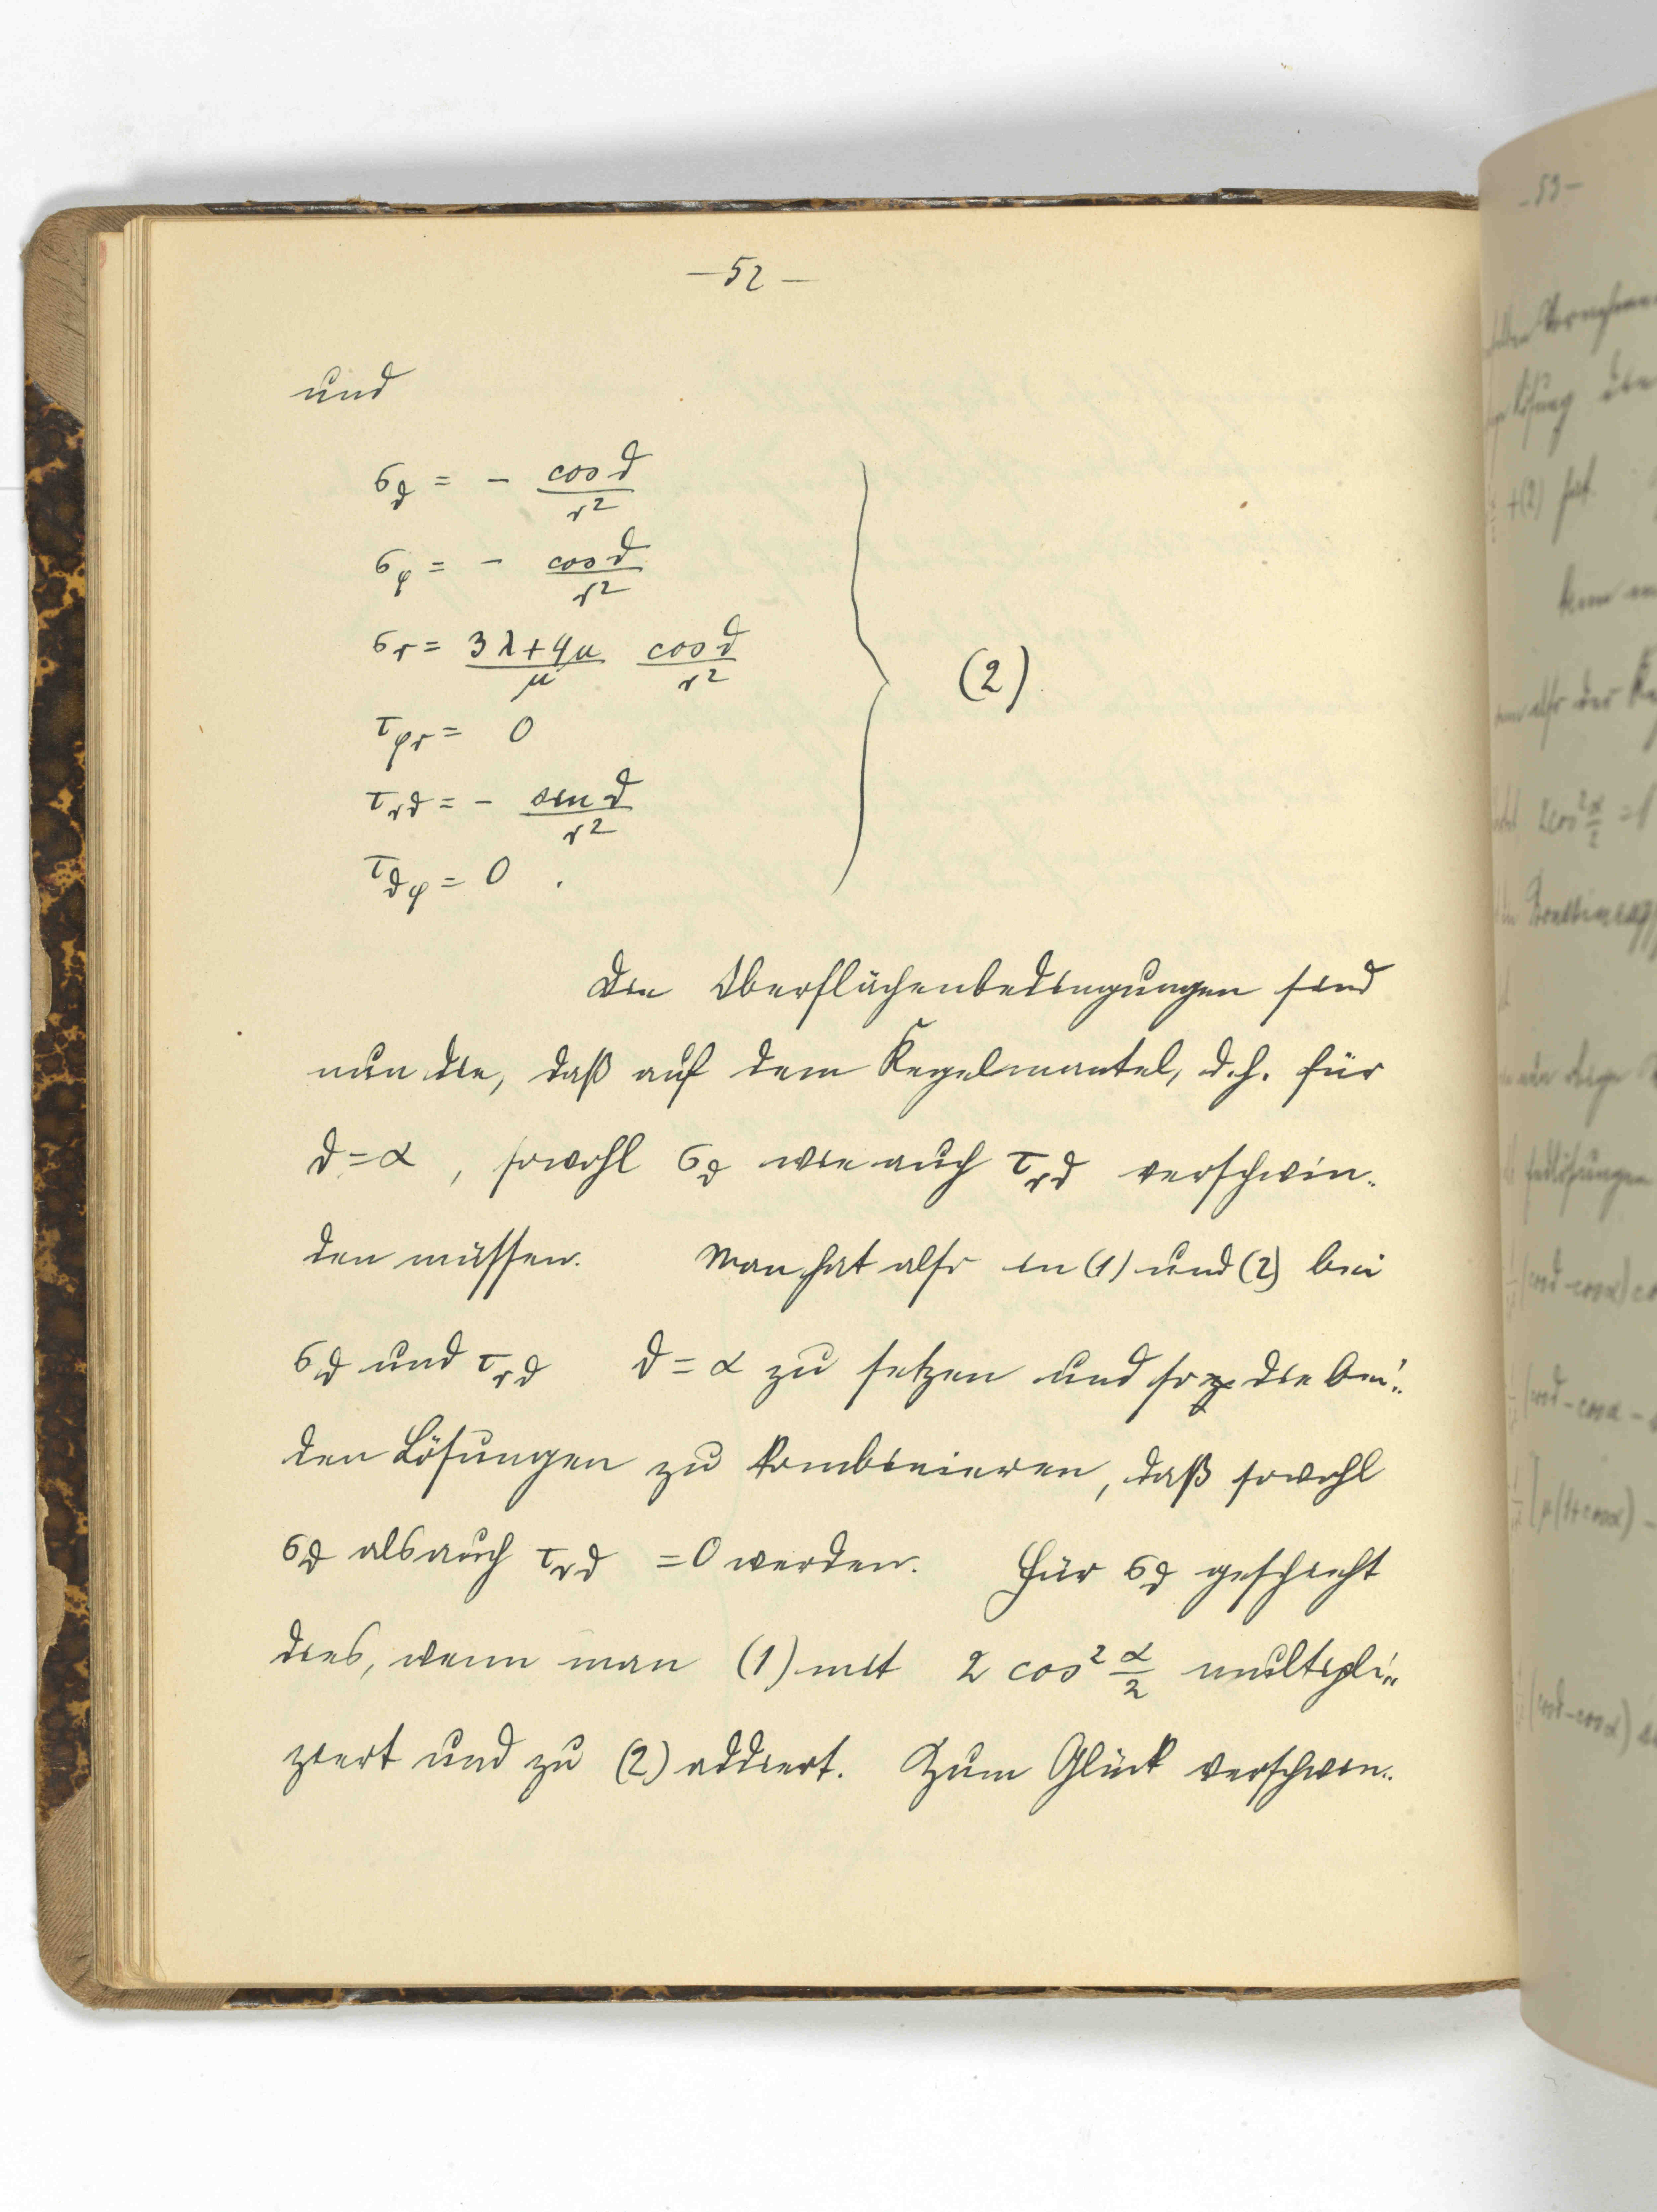 — 52 —
und
σ_ϑ = - cos ϑ / r²
σ_φ = - cos ϑ / r²
σ_r = (3λ+4μ) / μ cos ϑ / r²
τ_φr = 0
(2)
τ_rϑ = - sin ϑ / r²
τ_ϑφ = 0 .
Die Oberflächenbedingungen sind
nun die, daß auf dem Kegelmantel, d.h. für
ϑ = α , sowohl σ_ϑ wie auch τ_rϑ verschwin-
den müssen. Man hat also in (1) und (2) bei
σ_ϑ und τ_rϑ ϑ = α zu setzen und so die bei-
den Lösungen zu kombinieren, daß sowohl
σ_ϑ als auch τ_rϑ = 0 werden. Für σ_ϑ geschieht
dies, wenn man (1) mit 2 cos² α/2 multipli-
ziert und zu (2) addiert. Zum Glück verschwin-
- 53 -
+(2) hat
kann
also der
2 cos² α/2 = 1
(cos ϑ - cos α)
cos ϑ - cos α -
[μ(1+cos α) -
(cos ϑ - cos α)